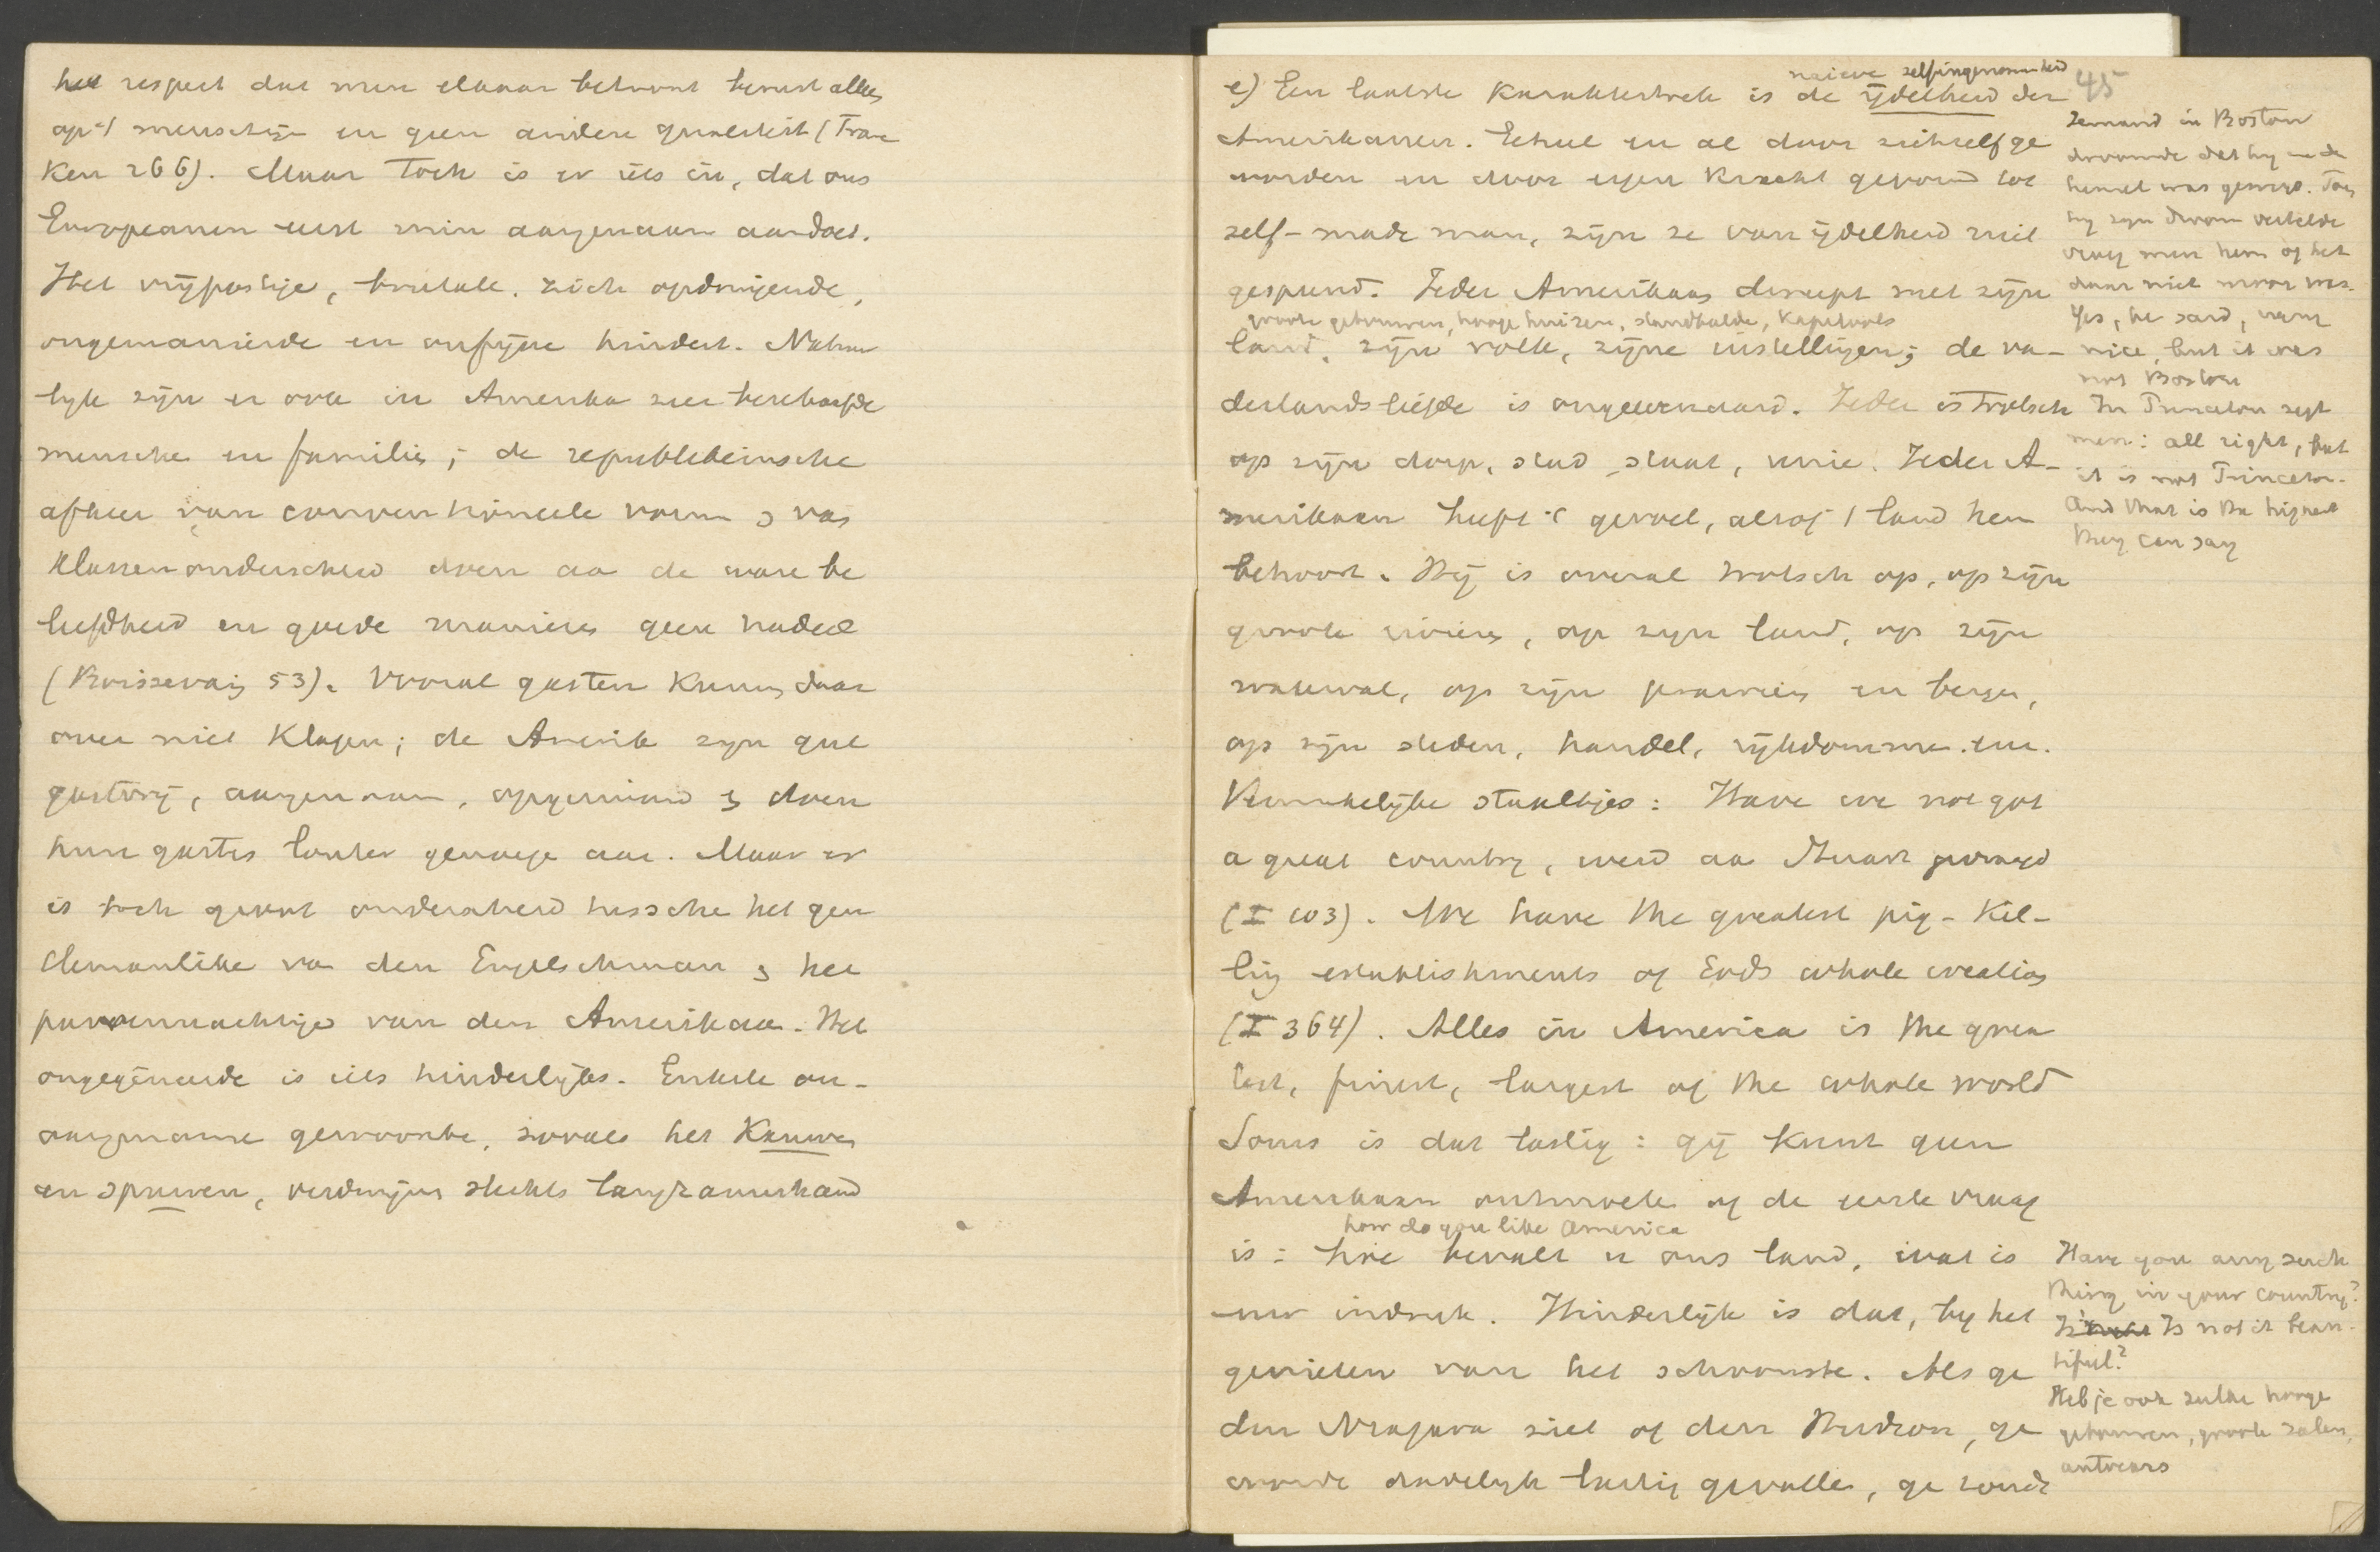 het respect dat men elkaar betoont berust alles
op 't menschzijn en geen andere qualiteit (Fran
ken 266). Maar toch is er iets in, dat ons
Europeanen eerst min aangenaam aandoet.
Het vrijpostige, brutale, zich opdringende,
ongemanierde en onfijne hindert. Natuur
lyk zijn er ook in Amerika zeer beschaafde
mensche en families; de republikeinsche
afkeer van conventioneele vorm & vas
klassenonderscheid doen aa de ware be
leefdheid en goede manieres geen nadeel
(Boissevain 53). Vooral gasten kunnen daar
over niet klagen; de Amerik zyn gul
gastvrij, aangenaam, opgeruimd & doen
hun gasten louter genoege aan. Maar er
is toch groot onderscheid tussche het gen
tlemanlike va den Engelschman & het
parvenuachtige van den Amerikaan. Het
ongegêneerde is iets hinderlijks. Enkele on-
aangename gewoonte, zooals het Kauwen
en spuwen, verdwijnen slechts langzamerhand
45
naieve zelfingenomenheid
e) Een laatste Karaktertrek is de ijdelheid der
Amerikanen. Geheel en al door zichzelf ge
worden en door eigen Kracht gevormd tot
self-made man, zijn ze van ijdelheid niet
gespeend. Ieder Amerikaan dweept met zijn
groote gebouwen, hooge huizen, standbeelde, Kapitools
land, zijn volk, zijne instellingen; de va-
derlandsliefde is ongeevenaard. Ieder is trotsch
op zijn dorp, stad, staat, unie. Ieder A-
merikaan heeft 't gevoel, alsof 't land hem
behoort. Hij is overal trotsch op, op zijn
groote rivieren, op zyn land, op zijn
waterval, op zijn prairies en bergen,
op zijn steden, handel, rijkdomme. enz.
Vermakelijke staaltjes: Have we not got
a great country, werd aa Stuart gevraagd
(I 103). We have the greatest pig-kil-
ling establishments of Gods whole creation
(I 364). Alles in America is the grea
test, finest, largest of the whole world
Soms is dat lastig: gij kunt geen
Amerikaan ontmoete of de eerste vraag
how do you like America
is: hoe bevalt u ons land, wat is
uw indruk. Hinderlijk is dat, by het
genieten van het schoonste. Als ge
den Niagara ziet of den Hudson, ge
wordt dadelyk lastig gevalle, ge zoudt
Iemand in Boston
droomde dat hy in de
hemel was geweest. Toen
hy zyn droom vertelde
vroeg men hem of het
daar niet mooi was.
Yes, he said, very
nice, but it was
not Boston
In Princeton zegt
men: all right, but
it is not Princeton.
And that is the highest
they can say
Have you any such
thing in your country?
Is not it beau-
tiful?
Heb je ook zulke hooge
gebouwen, groote zalen,